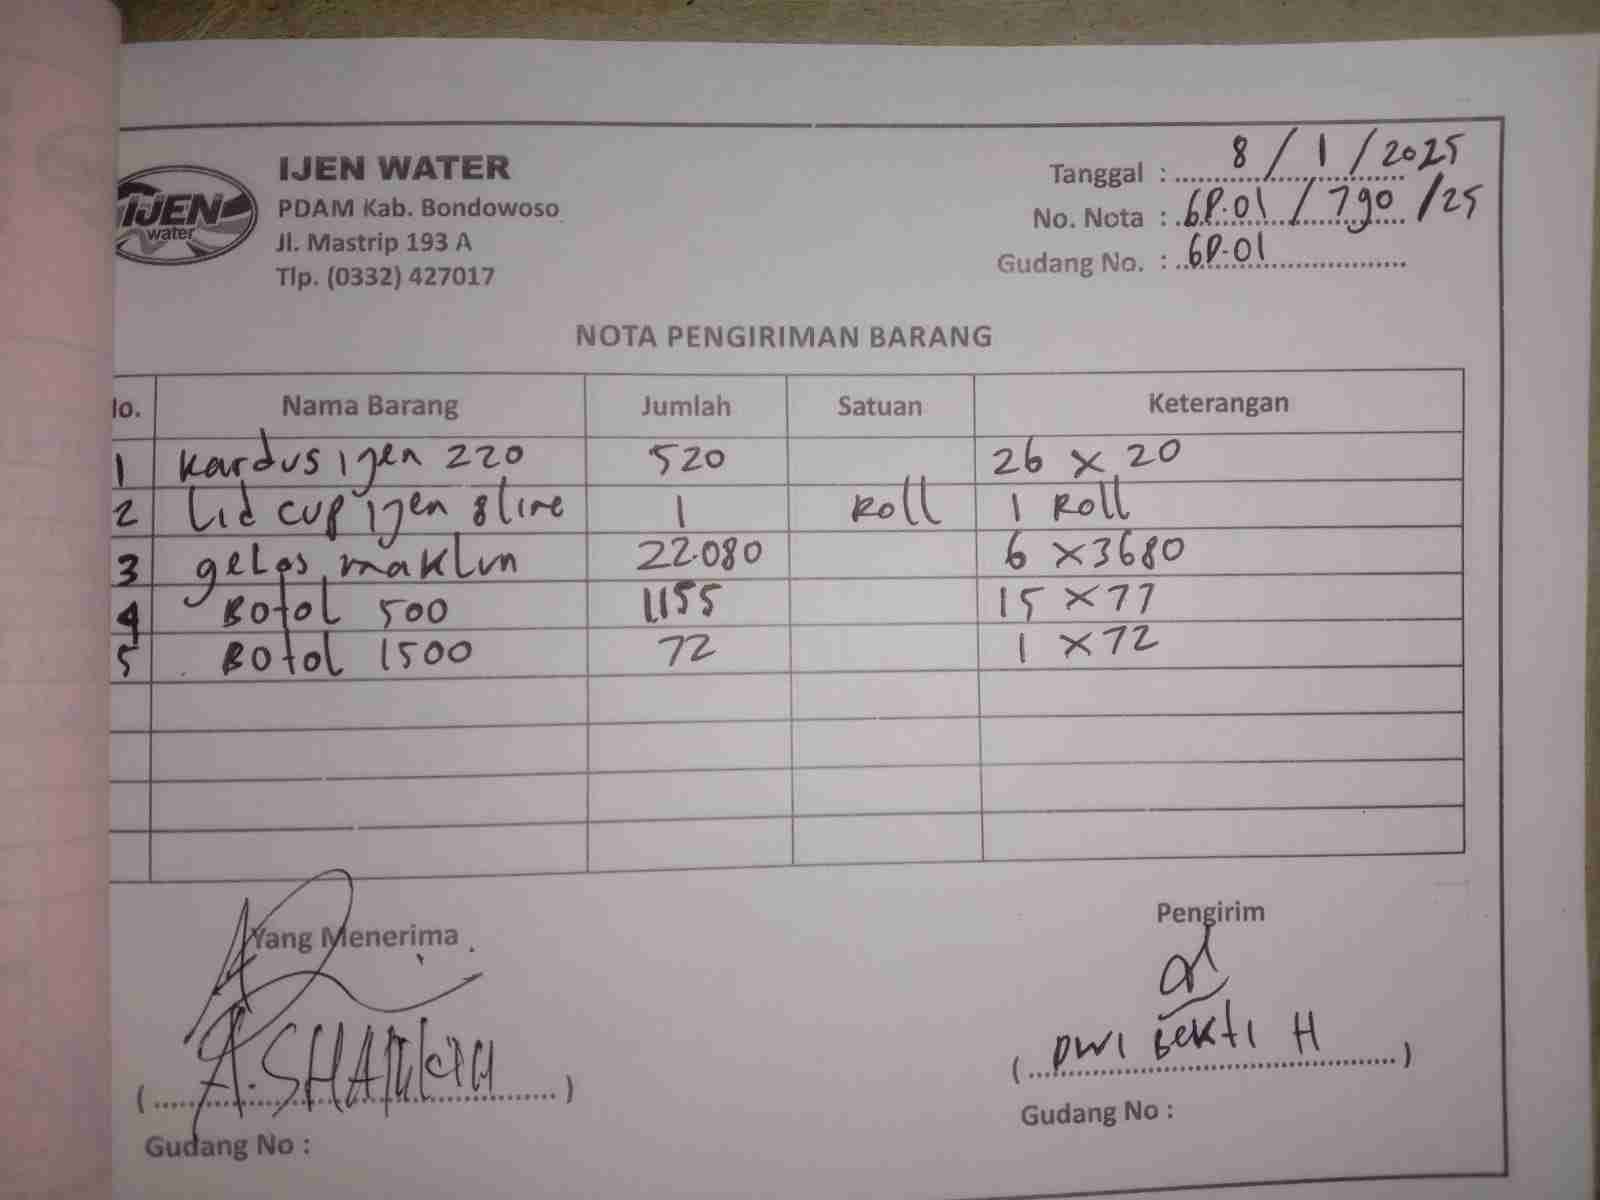 IJEN WATER
PDAM Kab. Bondowoso
Jl. Mastrip 193 A
Tlp. (0332) 427017
IJEN
water
Tanggal : 8 / 1 / 2025
No. Nota : GP.01 / 790 / 25
Gudang No. : GP.01
NOTA PENGIRIMAN BARANG
No. Nama Barang Jumlah Satuan Keterangan
1 Kardus ijen 220 520 26 x 20
2 Lid cup ijen 8 line 1 Roll 1 Roll
3 gelas maklun 22.080 6 x 3680
4 Botol 500 1.155 15 x 77
5 Botol 1500 72 1 x 72
Yang Menerima Pengirim
( A. ) ( DWI BEKTI H )
Gudang No : Gudang No :